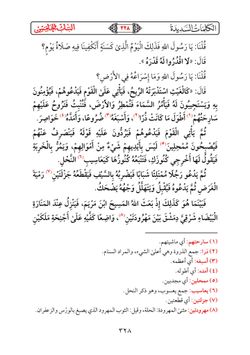 الكلمات السديدة
٣٢٨
قُلْنَا: يَا رَسُولَ اللهِ فَذَلِكَ الْيَوْمُ الَّذِي كَسَنَةٍ أَتَكْفِينَا فِيهِ صَلَاةُ يَوْمٍ؟
قَالَ: «لَا اقْدُرُوا لَهُ قَدْرَهُ».
قُلْنَا: يَا رَسُولَ اللهِ وَمَا إِسْرَاعُهُ فِي الْأَرْضِ؟
قَالَ: «كَالْغَيْثِ اسْتَدْبَرَتْهُ الرِّيحُ، فَيَأْتِي عَلَى الْقَوْمِ فَيَدْعُوهُمْ، فَيُؤْمِنُونَ
بِهِ وَيَسْتَجِيبُونَ لَهُ فَيَأْمُرُ السَّمَاءَ فَتُمْطِرُ وَالْأَرْضَ، فَتُنْبِتُ فَتَرُوحُ عَلَيْهِمْ
سَارِحَتُهُمْ(١) أَطْوَلَ مَا كَانَتْ ذُرًا(٢)، وَأَسْبَغَهُ(٣) ضُرُوعًا، وَأَمَدَّهُ(٤) خَوَاصِرَ.
ثُمَّ يَأْتِي الْقَوْمَ فَيَدْعُوهُمْ فَيَرُدُّونَ عَلَيْهِ قَوْلَهُ فَيَنْصَرِفُ عَنْهُمْ
فَيُصْبِحُونَ مُمْحِلِينَ(٥) لَيْسَ بِأَيْدِيهِمْ شَيْءٌ مِنْ أَمْوَالِهِمْ، وَيَمُرُّ بِالْخَرِبَةِ
فَيَقُولُ لَهَا أَخْرِجِي كُنُوزَكِ، فَتَتْبَعُهُ كُنُوزُهَا كَيَعَاسِيبِ(٦) النَّحْلِ.
ثُمَّ يَدْعُو رَجُلًا مُمْتَلِئًا شَبَابًا فَيَضْرِبُهُ بِالسَّيْفِ فَيَقْطَعُهُ جَزْلَتَيْنِ(٧) رَمْيَةَ
الْغَرَضِ ثُمَّ يَدْعُوهُ فَيُقْبِلُ وَيَتَهَلَّلُ وَجْهُهُ يَضْحَكُ.
فَبَيْنَمَا هُوَ كَذَلِكَ إِذْ بَعَثَ اللهُ الْمَسِيحَ ابْنَ مَرْيَمَ، فَيَنْزِلُ عِنْدَ الْمَنَارَةِ
الْبَيْضَاءِ شَرْقِيَّ دِمَشْقَ بَيْنَ مَهْرُودَتَيْنِ(٨)، وَاضِعًا كَفَّيْهِ عَلَى أَجْنِحَةِ مَلَكَيْنِ
(١) سارحتهم: أي ماشيتهم.
(٢) ذرا: جمع الذروة وهي أعلى الشيء، والمراد السنام.
(٣) أسبغه: أي أعظمه.
(٤) أمده: أي أطوله.
(٥) ممحلين: أي مجدبين.
(٦) يعاسيب: جمع يعسوب، وهو ذكر النحل.
(٧) جزلتين: أي قطعتين.
(٨) مهرودتين: مثنى المهرودة: الحلة، وقيل: الثوب المهرود الذي يصبغ بالورس والزعفران.
٣٢٨